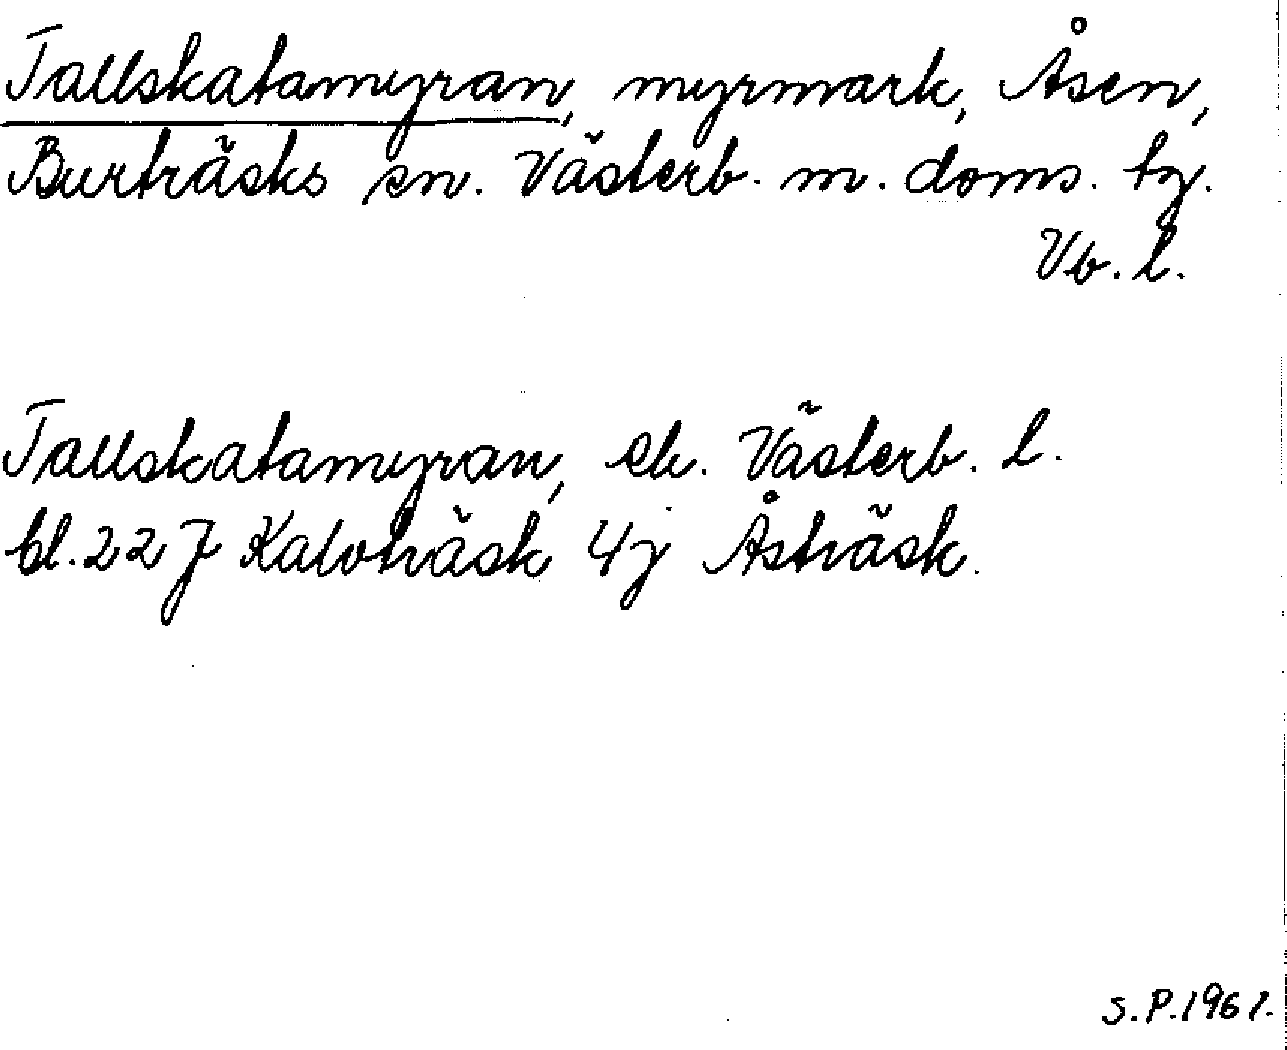 Tallskatamyran, myrmark, Åsen,
Burträsks sn. Västerb. m. doms. tg.
Vb. l.
Tallskatamyran, ek. Västerb. l.
bl. 22 J Kalvträsk 4j Åsträsk.
S.P. 1961.